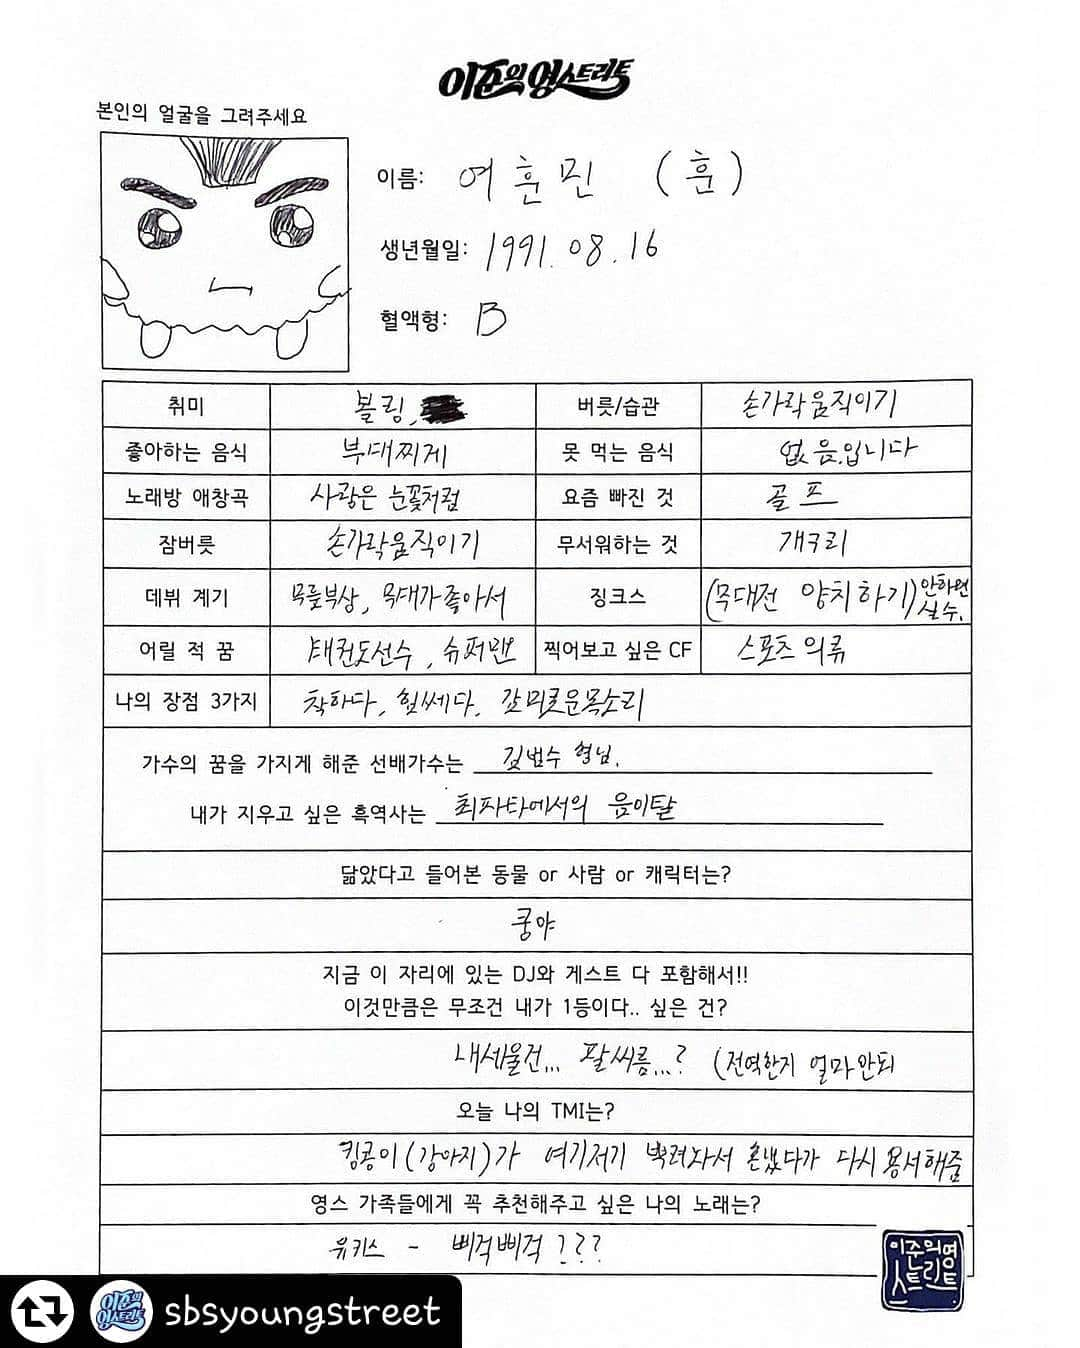 이준의 영스트리트
본인의 얼굴을 그려주세요
이름: 여훈민 (훈)
생년월일: 1991.08.16
혈액형: B
취미 볼링, 버릇/습관 손가락움직이기
좋아하는 음식 부대찌게 못 먹는 음식 없음입니다
노래방 애창곡 사랑은 눈꽃처럼 요즘 빠진 것 골프
잠버릇 손가락움직이기 무서워하는 것 개구리
데뷔 계기 무릎부상, 무대가좋아서 징크스 (무대전 양치하기) 안하면 실수.
어릴 적 꿈 태권도선수, 슈퍼맨 찍어보고 싶은 CF 스포츠의류
나의 장점 3가지 착하다, 힘쎄다, 감미로운목소리
가수의 꿈을 가지게 해준 선배가수는 김범수 형님.
내가 지우고 싶은 흑역사는 최파타에서의 음이탈
닮았다고 들어본 동물 or 사람 or 캐릭터는?
쿵야
지금 이 자리에 있는 DJ와 게스트 다 포함해서!!
이것만큼은 무조건 내가 1등이다.. 싶은 건?
내세울건... 팔씨름...? (전역한지 얼마안되
오늘 나의 TMI는?
킹콩이(강아지)가 여기저기 싸놔서 혼냈다가 다시 용서해줌
영스 가족들에게 꼭 추천해주고 싶은 나의 노래는?
유키스 - 삐걱삐걱???
이준의영
스트리트
sbsyoungstreet